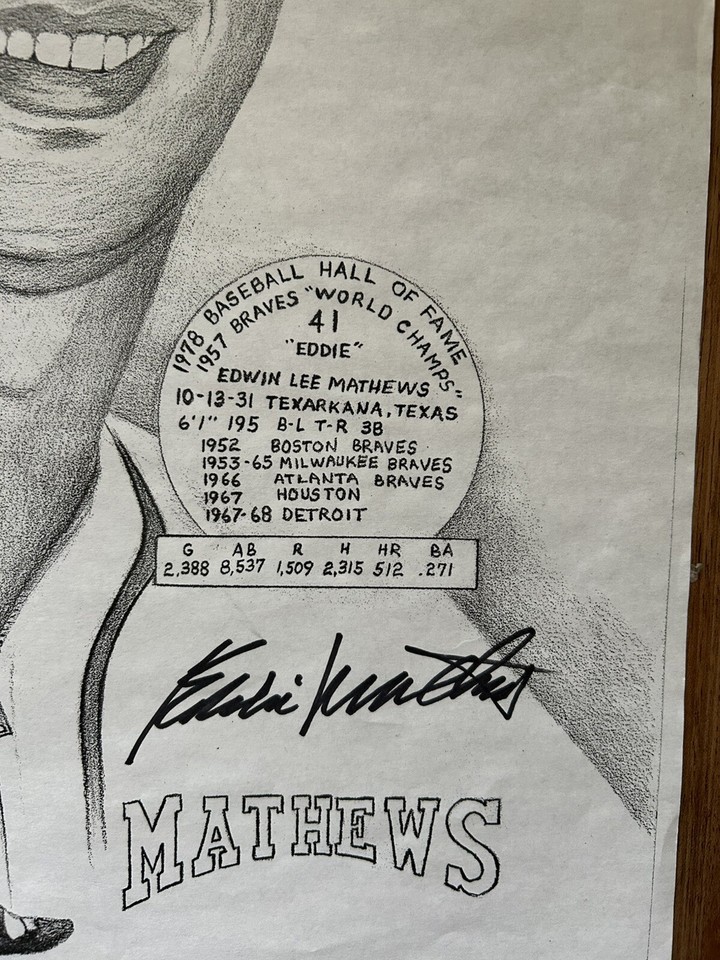 1978 BASEBALL HALL OF FAME
1957 BRAVES "WORLD CHAMPS"
41
"EDDIE"
EDWIN LEE MATHEWS
10-13-31 TEXARKANA, TEXAS
6'1" 195 B-L T-R 3B
1952 BOSTON BRAVES
1953-65 MILWAUKEE BRAVES
1966 ATLANTA BRAVES
1967 HOUSTON
1967-68 DETROIT
G AB R H HR BA
2,388 8,537 1,509 2,315 512 .271
Eddie Mathews
MATHEWS